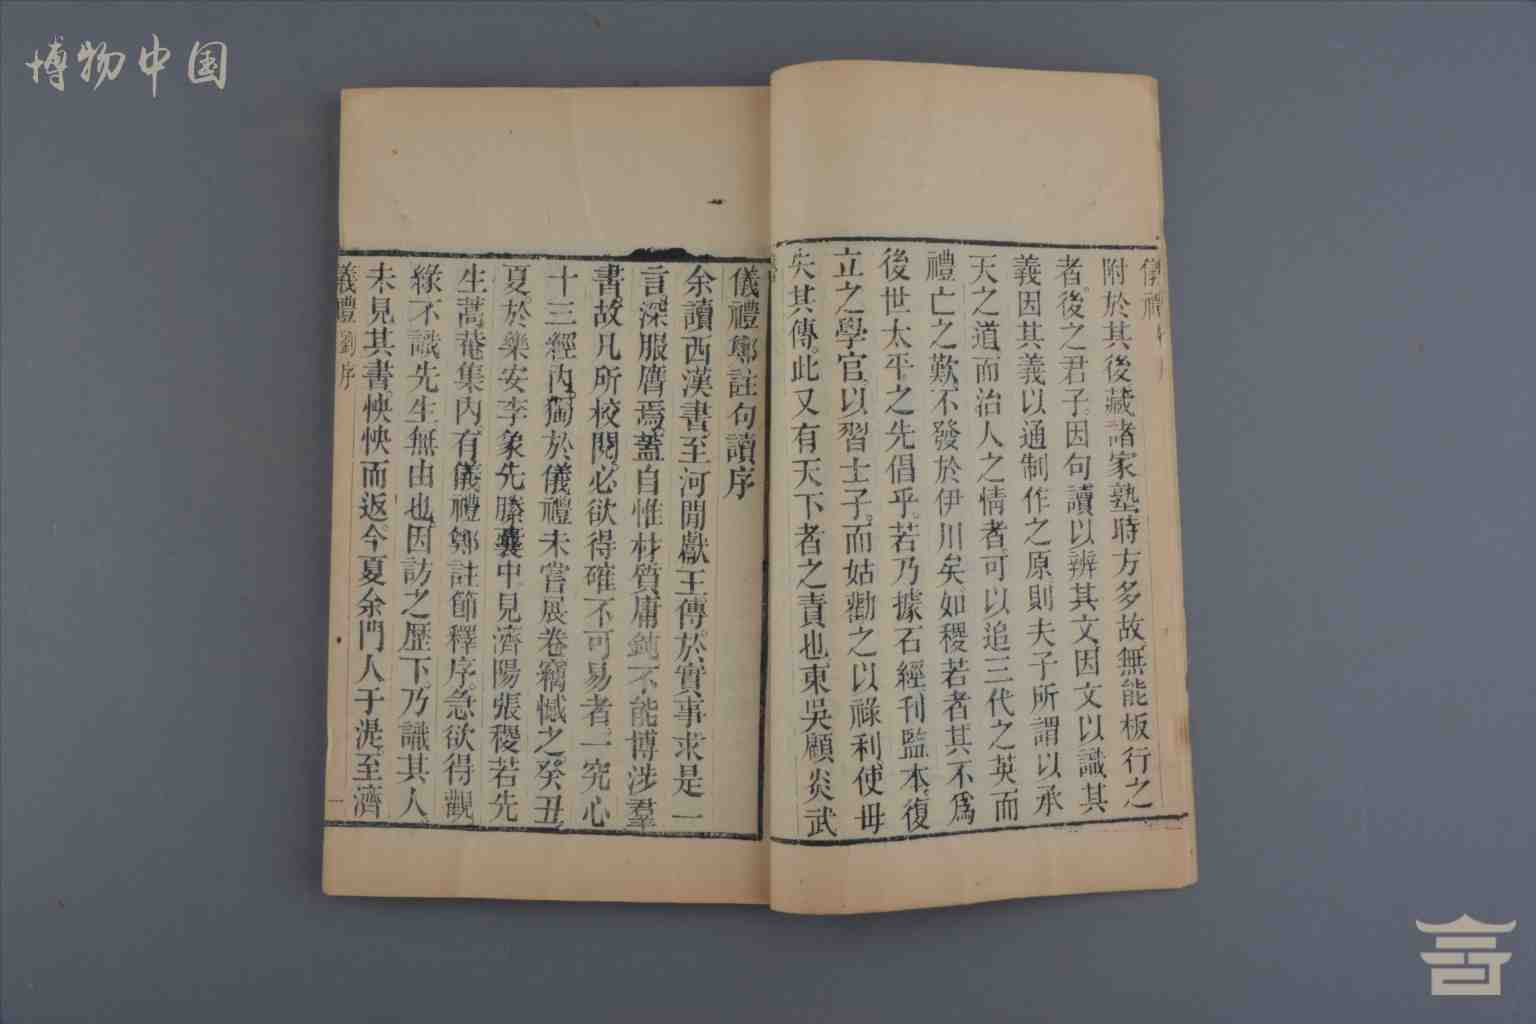 博物中国
附於其後藏諸家塾時方多故無能板行之
者後之君子因句讀以辨其文因文以識其
義因其義以通制作之原則夫子所謂以承
天之道而治人之情者可以追三代之英而
禮亡之歎不發於伊川矣如稷若者其不爲
後世太平之先倡乎若乃據石經刊監本復
立之學官以習士子而姑勸之以祿利使毋
失其傳此又有天下者之責也東吳顧炎武
儀禮鄭註句讀序
余讀西漢書至河間獻王傳於實事求是一
言深服膺焉蓋自惟材質庸鈍不能博涉羣
書故凡所校閱必欲得確不可易者一究心
十三經內獨於儀禮未嘗展卷竊憾之癸丑
夏於樂安李象先滕囊中見濟陽張稷若先
生蒿菴集內有儀禮鄭註節釋序急欲得觀
緣不識先生無由也因訪之歷下乃識其人
未見其書怏怏而返今夏余門人于湜至濟
儀禮 劉序 一